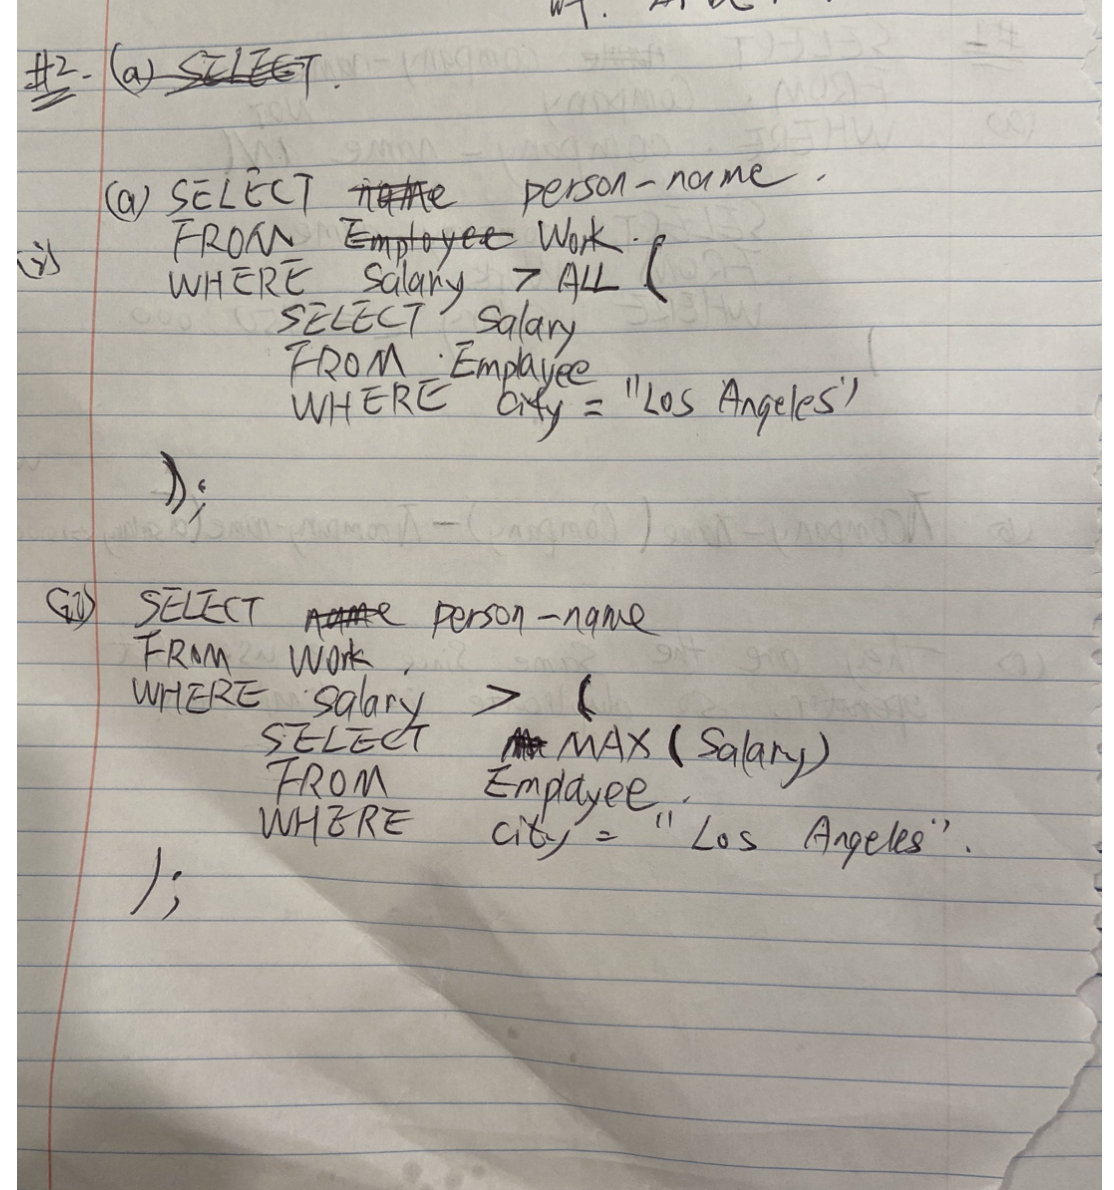 #2. (a) SELECT.
(a) SELECT name person-name.
(i) FROM Employee Work.
WHERE Salary > ALL (
SELECT Salary
FROM Employee
WHERE city = "Los Angeles"
);
(ii) SELECT name person-name
FROM Work
WHERE salary > (
SELECT MAX (Salary)
FROM Employee.
WHERE city = "Los Angeles".
);